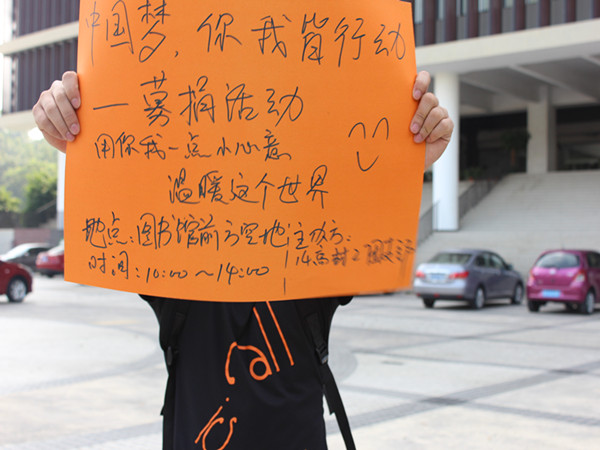 中国梦，你我皆行动
—募捐活动
用你我一点小心意
温暖这个世界
地点：图书馆前方空地
时间：10:00～14:00
主办方：
call
ics